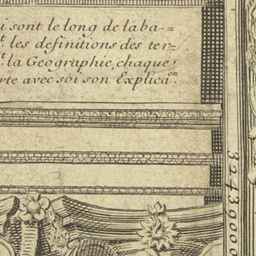 i sont le long de la ba-=
t les definitions des ter-=
t la Geographie, chaque
rte avec soi son Explica.on
32439000